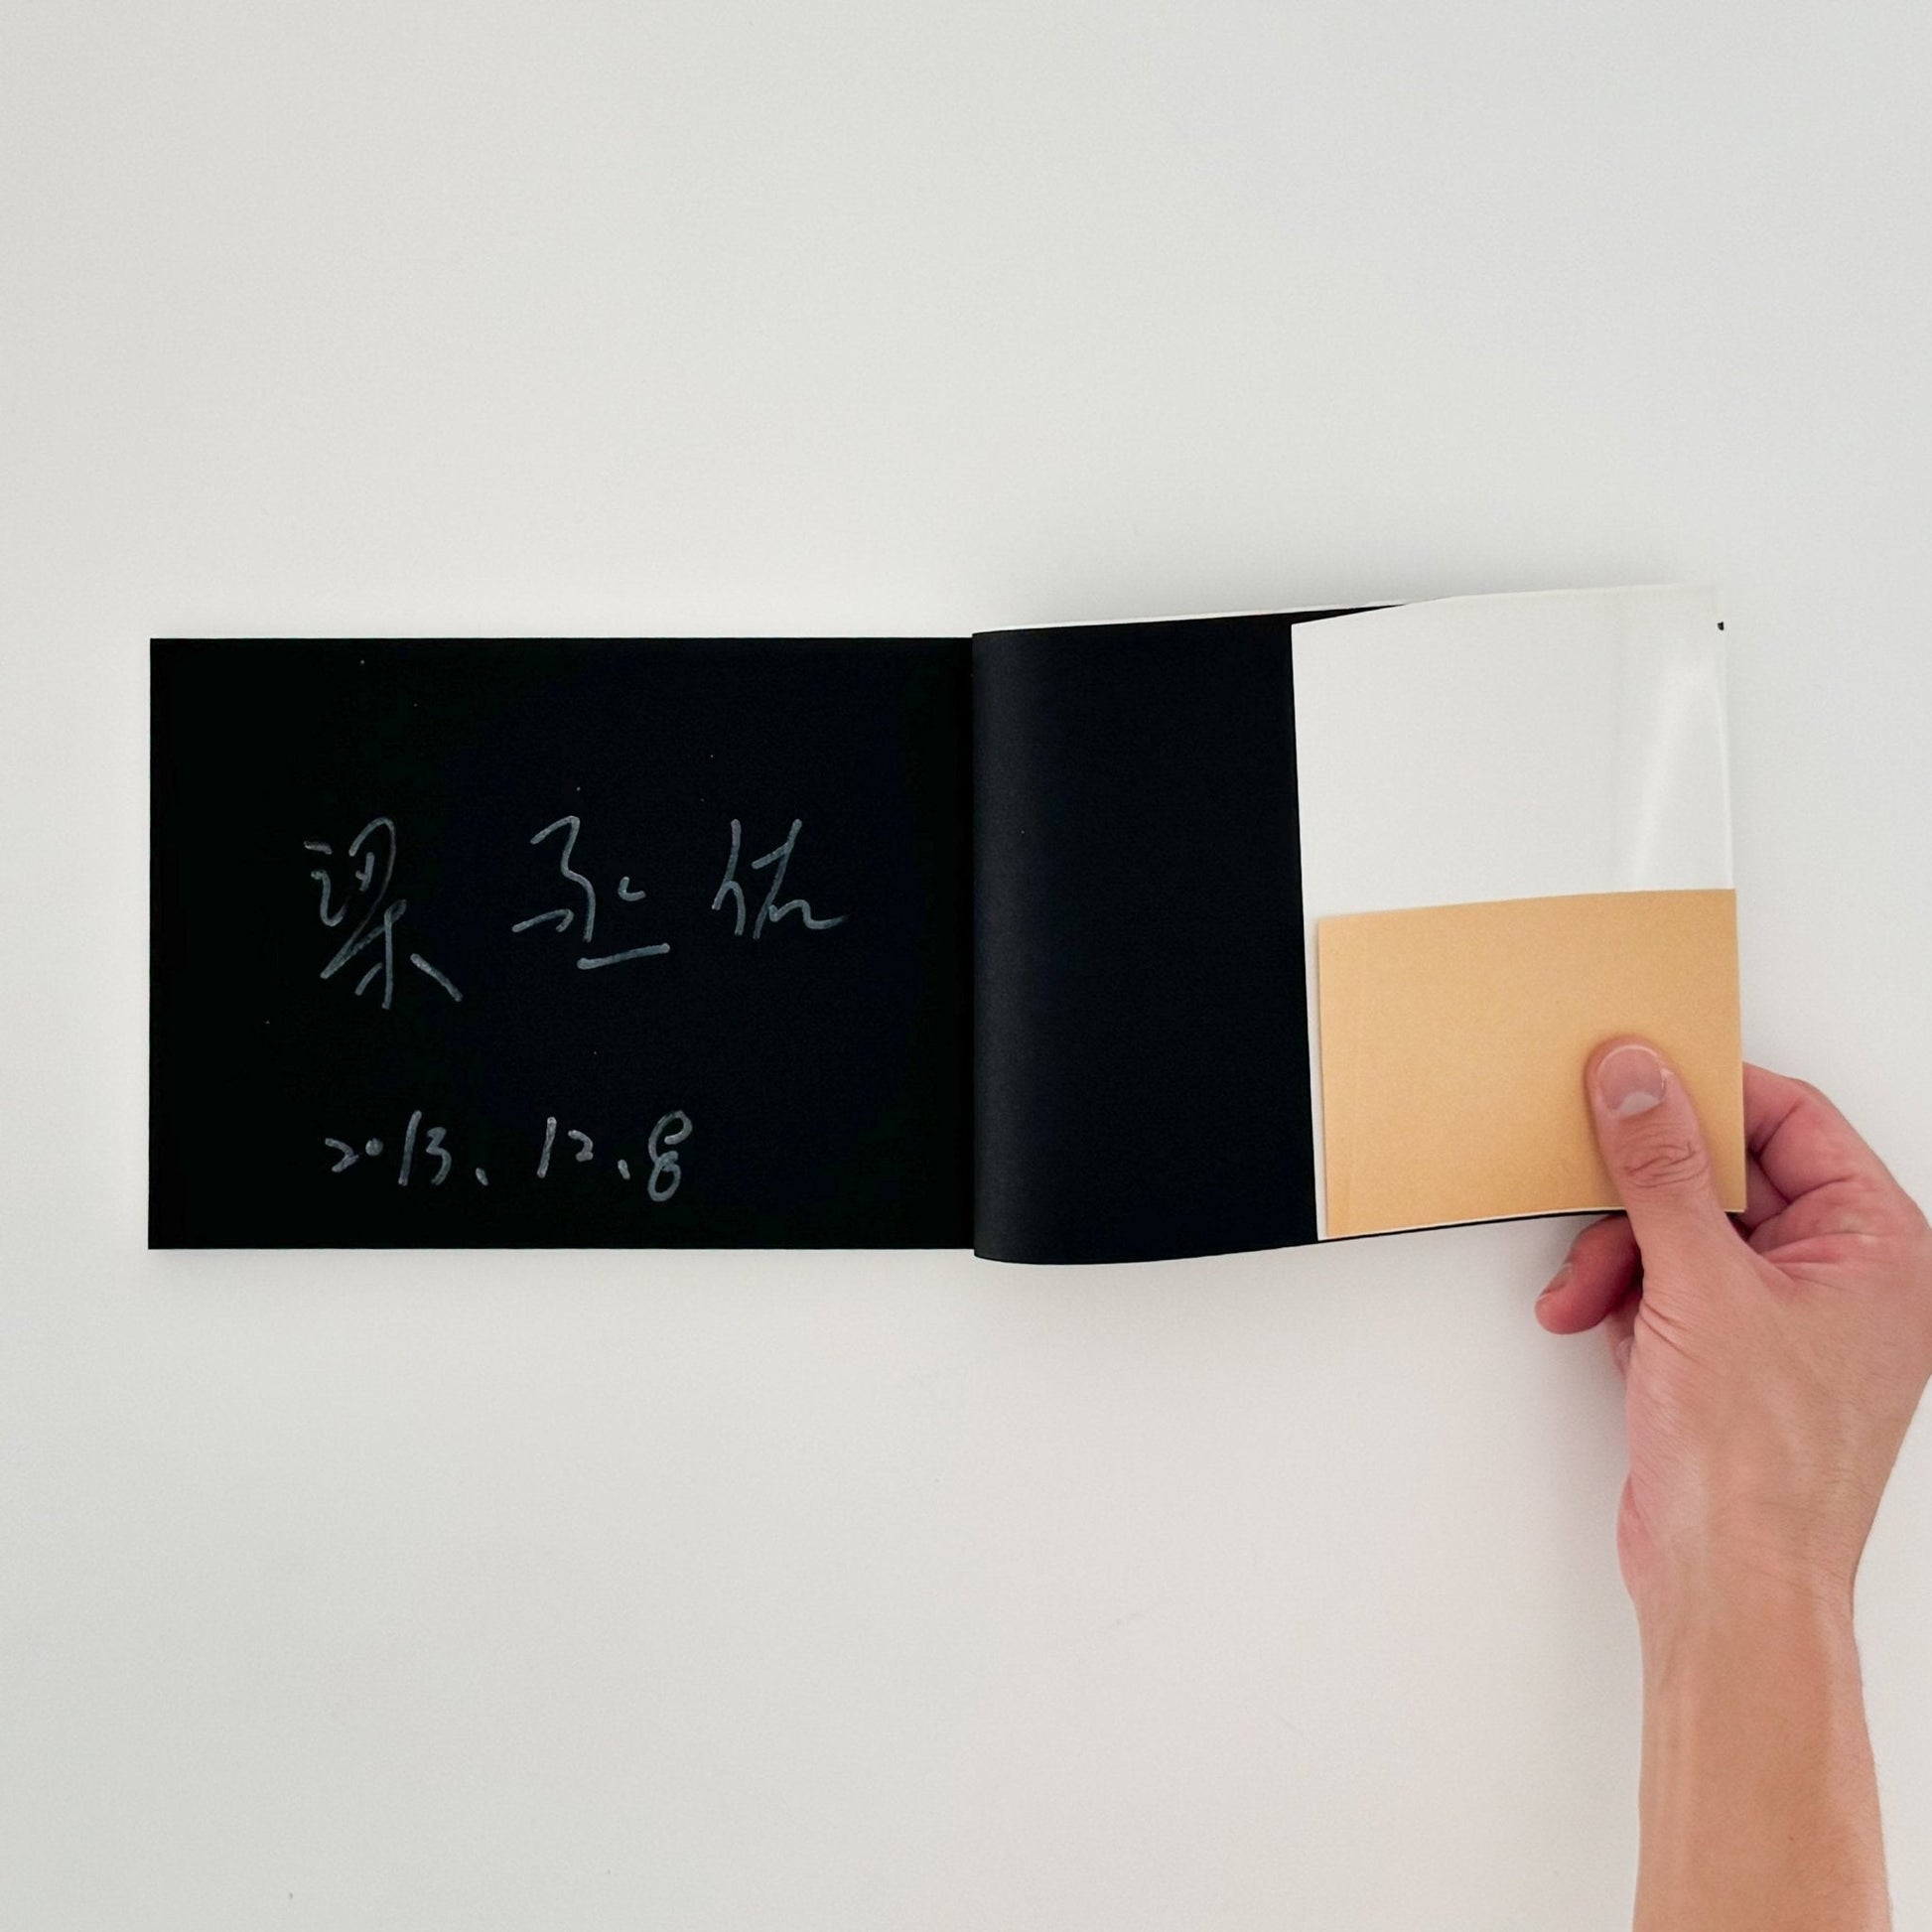 梁丞佑
2013、12、8